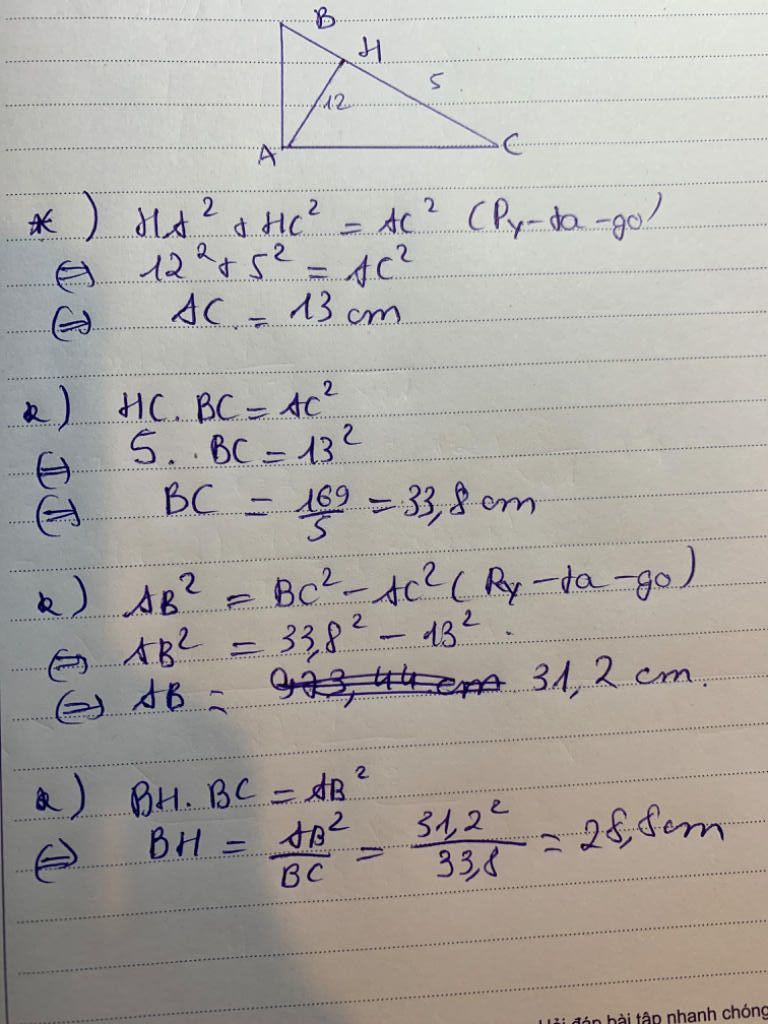 B
H
5
12
A
C
*) HA² + HC² = AC² (Py-ta-go)
⇔ 12² + 5² = AC²
⇔ AC = 13 cm
*) HC. BC = AC²
⇔ 5. BC = 13²
⇔ BC = 169/5 = 33,8 cm
*) AB² = BC² - AC² (Py-ta-go)
⇔ AB² = 33,8² - 13².
⇔ AB = 31,2 cm.
*) BH. BC = AB²
⇔ BH = AB²/BC = 31,2²/33,8 = 28,8cm
Hỏi đáp bài tập nhanh chóng